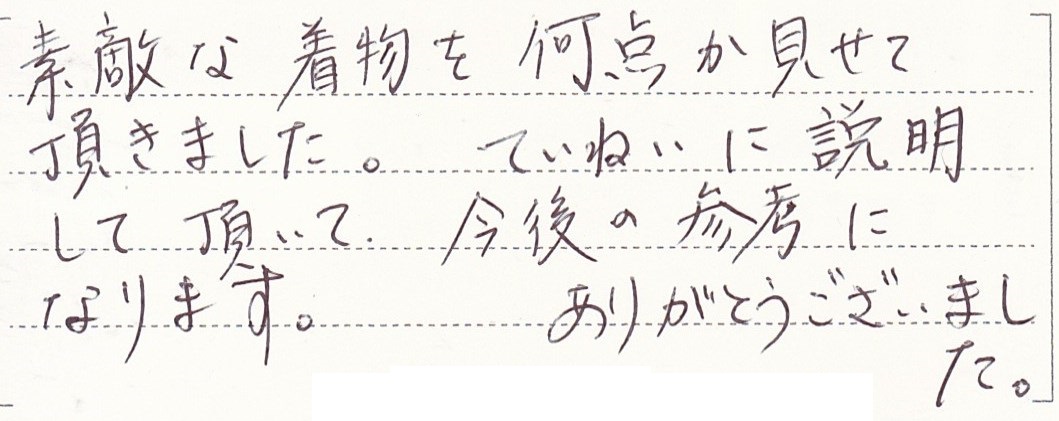 素敵な着物を何点か見せて
頂きました。 ていねいに説明
して頂いて. 今後の参考に
なります。 ありがとうございまし
た。